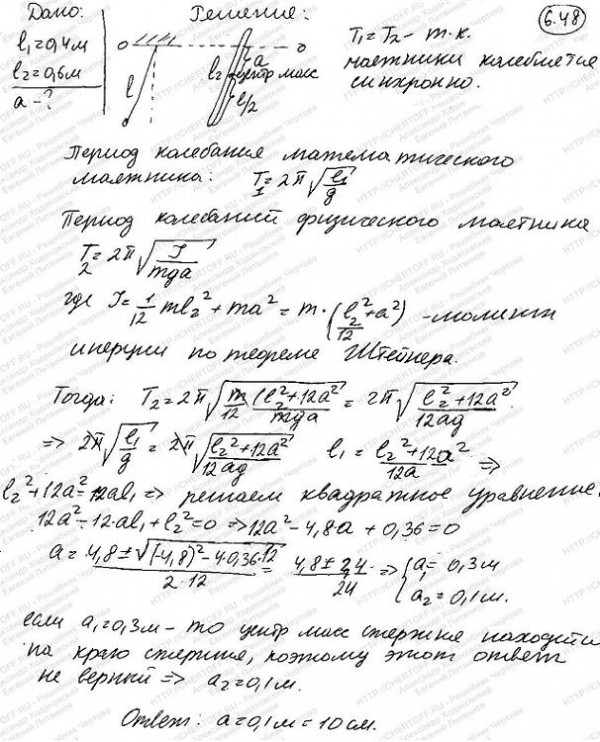 Дано: Решение: 6.48
l₁=0,4м
l₂=0,6м
a-?
O O
l
l₂ a
центр масс
l/2
T₁=T₂ - т.к.
маятники колеблется
синхронно.
Период колебания математического
маятника: T₁=2π√(l₁/g)
Период колебаний физического маятника
T₂=2π√(J/mga)
где J=1/12 ml₂²+ma²=m·(l₂²/12+a²) -момент
инерции по теореме Штейнера.
Тогда: T₂=2π√(m/12 (l₂²+12a²)/mga)=2π√((l₂²+12a²)/12ag)
=> 2π√(l₁/g)=2π√((l₂²+12a²)/12ag) l₁=(l₂²+12a²)/12a =>
l₂²+12a²=12al₁ => решаем квадратное уравнение.
12a²-12·al₁+l₂²=0 =>12a²-4,8a+0,36=0
a=(4,8±√((-4,8)²-4·0,36·12))/(2·12)=(4,8±2,4)/24 => {a₁=0,3м
a₂=0,1м.
если a₁=0,3м-то центр масс стержня находится
на краю стержня, поэтому этот ответ
не верный => a₂=0,1м.
Ответ: a=0,1м=10см.